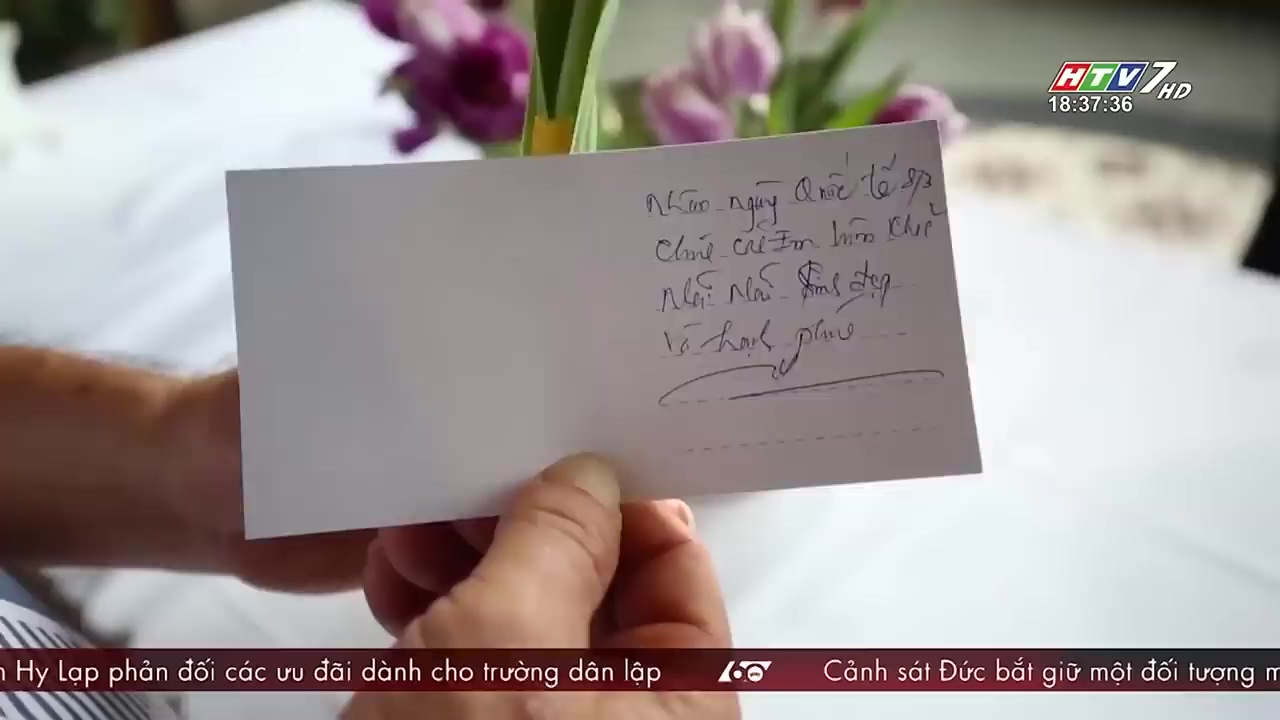 HTV7 HD
18:37:36
Nhân ngày Quốc tế 8/3
Chúc các Em luôn khỏe
Mãi Mãi Xinh đẹp
và hạnh phúc
n Hy Lạp phản đối các ưu đãi dành cho trường dân lập
60 giây
Cảnh sát Đức bắt giữ một đối tượng m